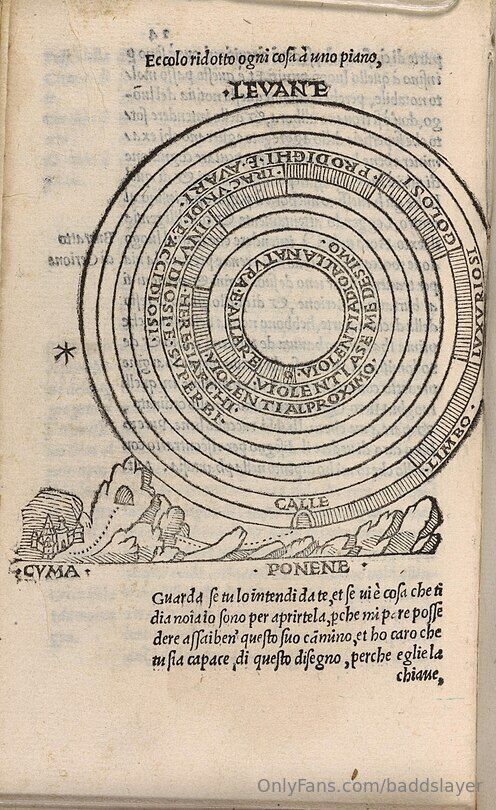 Eccolo ridotto ogni cosa à uno piano,
·LEVANTE
IRACVNDI·E·ACCIDIOSI·
PRODIGHI·E AVARI·
GOLOSI
LVXVRIOSI
·LIMBO·
INVIDIOSI·E·SVPERBI·
HERESIARCHI·
VIOLENTI AL PROXIMO·
VIOLENTI A SE MEDESIMO·
VIOLENTI A DIO ALLA NATVRA E ALLARTE
CALLE
·CVMA·
·PONENTE·
Guarda se tu lo intendi da te, et se ui è cosa che ti
dia noia io sono per aprirtela, pche mi pare posse
dere assai ben' questo suo cāmino, et ho caro che
tu sia capace di questo disegno, perche eglie la
chiaue,
OnlyFans.com/baddslayer